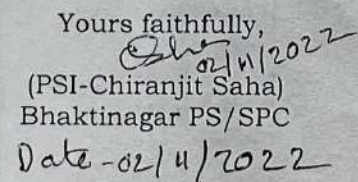 Yours faithfully,
02/11/2022
(PSI-Chiranjit Saha)
Bhaktinagar PS/SPC
Date-02/11/2022